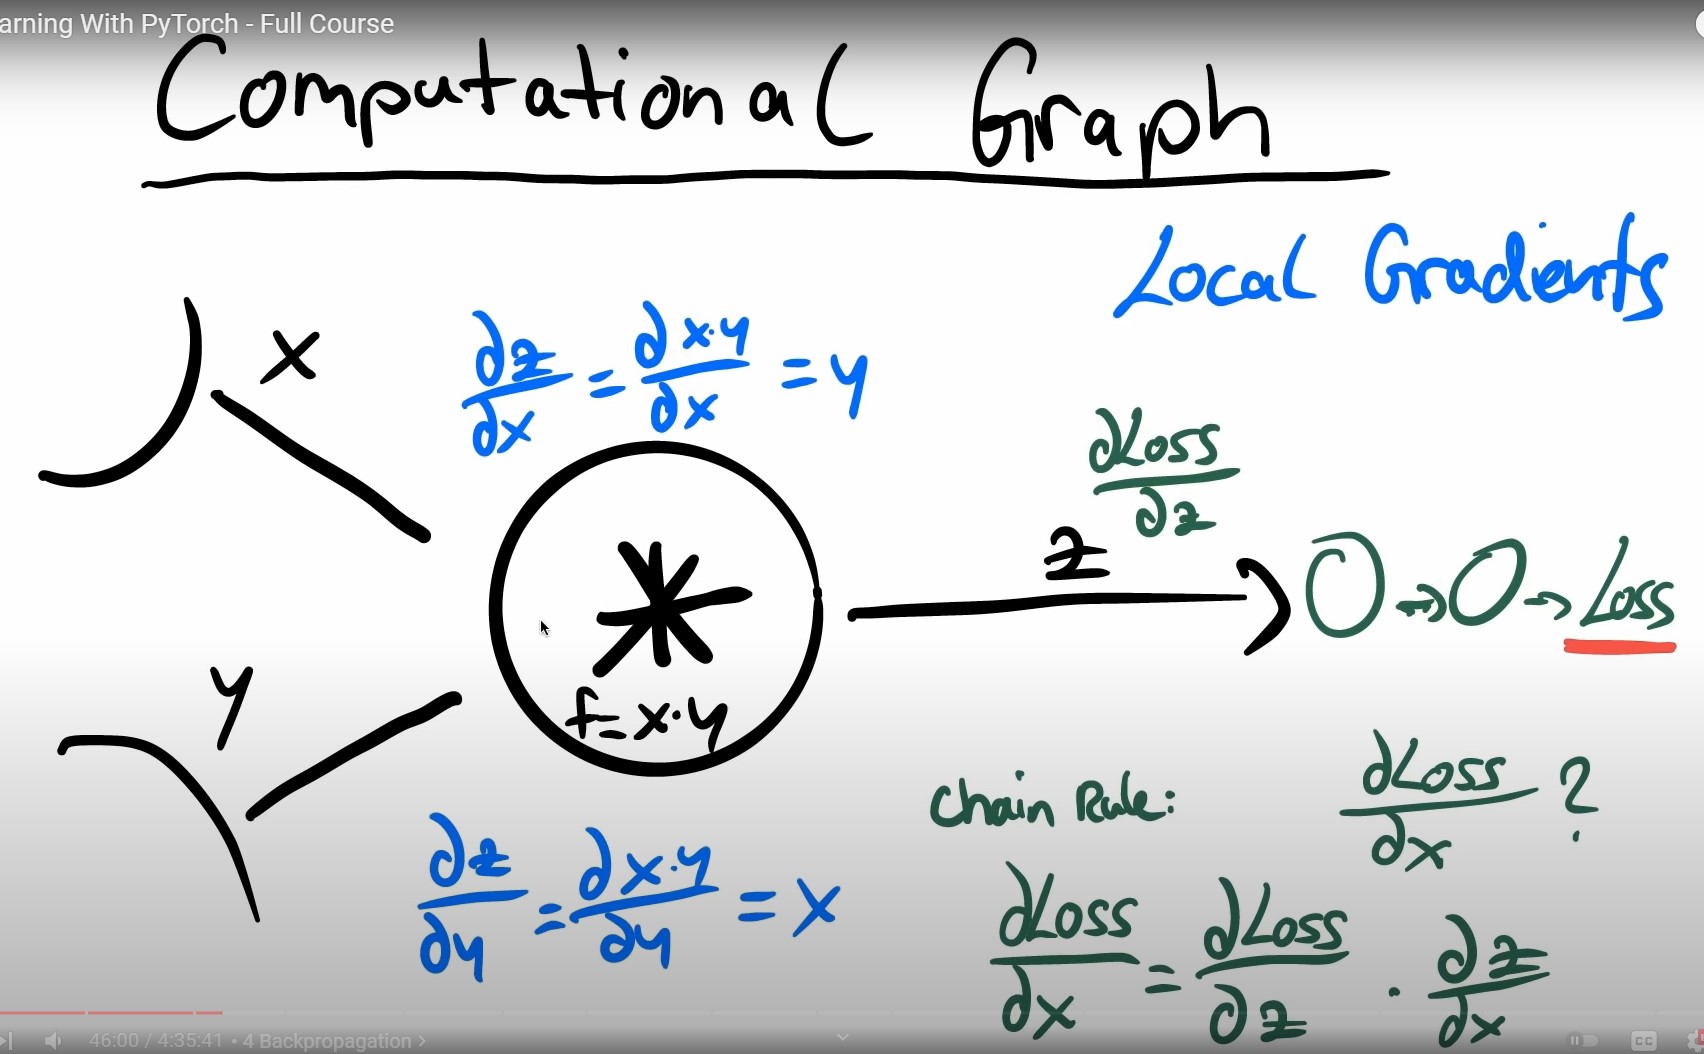 arning With PyTorch - Full Course
Computational Graph
Local Gradients
x
∂z/∂x = ∂x·y/∂x = y
∂Loss/∂z
z
O → O → Loss
*
f = x·y
y
∂z/∂y = ∂x·y/∂y = x
Chain Rule:
∂Loss/∂x ?
∂Loss/∂x = ∂Loss/∂z · ∂z/∂x
46:00 / 4:35:41 • 4 Backpropagation >
CC